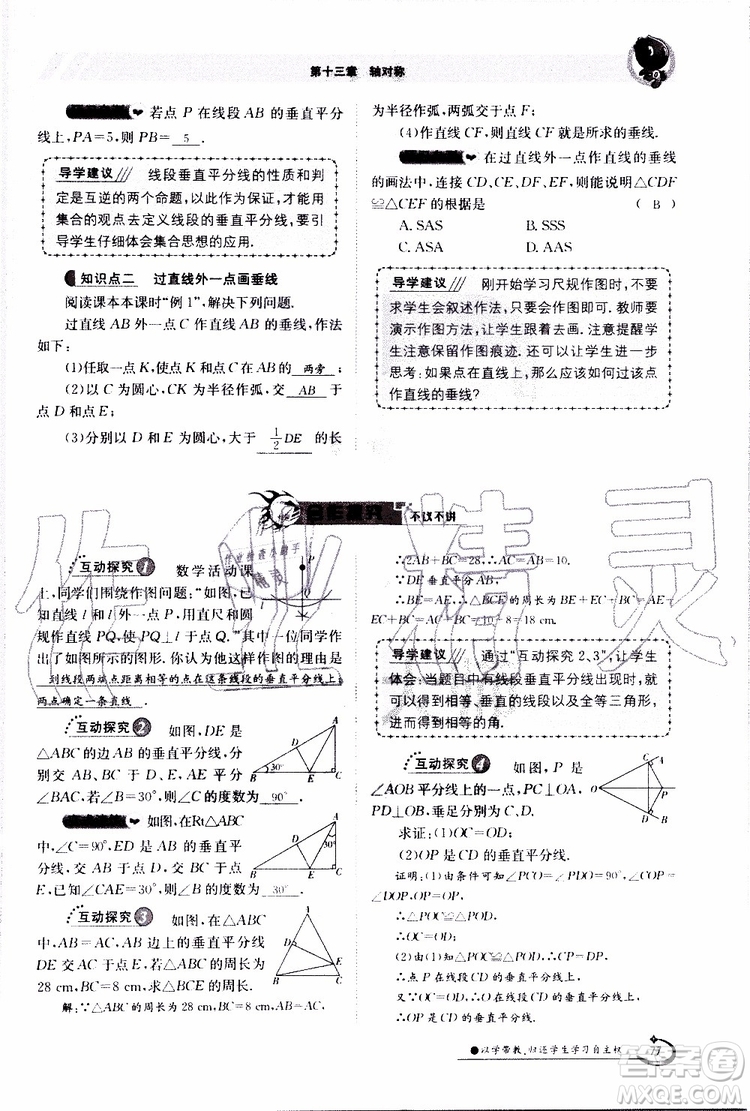 第十三章 轴对称
若点 P 在线段 AB 的垂直平分
线上,PA=5,则 PB= 5 .
导学建议 线段垂直平分线的性质和判
定是互逆的两个命题,以此作为保证,才能用
集合的观点去定义线段的垂直平分线,要引
导学生仔细体会集合思想的应用.
知识点二 过直线外一点画垂线
阅读课本本课时“例 1”,解决下列问题.
过直线 AB 外一点 C 作直线 AB 的垂线,作法
如下:
(1)任取一点 K,使点 K 和点 C 在 AB 的 两旁 ;
(2)以 C 为圆心,CK 为半径作弧,交 AB 于
点 D 和点 E;
(3)分别以 D 和 E 为圆心,大于 1/2 DE 的长
为半径作弧,两弧交于点 F;
(4)作直线 CF,直线 CF 就是所求的垂线.
在过直线外一点作直线的垂线
的画法中,连接 CD、CE、DF、EF,则能说明△CDF
≌△CEF 的根据是 ( B )
A. SAS B. SSS
C. ASA D. AAS
导学建议 刚开始学习尺规作图时,不要
求学生会叙述作法,只要会作图即可.教师要
演示作图方法,让学生跟着去画.注意提醒学
生注意保留作图痕迹.另外,可以让学生进一步
思考:如果点在直线上,那么应该如何过该点
作直线的垂线?
合作探究 不议不讲
互动探究 1 数学活动课
上,同学们围绕作图问题:“如图,已
知直线 l 和 l 外一点 P,用直尺和圆
规作直线 PQ,使 PQ⊥l 于点 Q.”其中一位同学作
出了如图所示的图形.你认为他这样作图的理由是
到线段两端点距离相等的点在这条线段的垂直平分线上,
两点确定一条直线.
P
l
互动探究 2 如图,DE 是
△ABC 的边 AB 的垂直平分线,分
别交 AB、BC 于点 D、E,AE 平分
∠BAC,若∠B=30°,则∠C 的度数为 90° .
A
D
30°
B E C
如图,在Rt△ABC
中,∠C=90°,ED 是 AB 的垂直平
分线,交 AB 于点 D,交 BC 于点
E.已知∠CAE=30°,则∠B 的度数为 30° .
A
30°
D
B E C
互动探究 3 如图,在△ABC
中,AB=AC,AB 的垂直平分线
DE 交 AC 于点 E,△ABC 的周长为
28 cm,BC=8 cm,求△BCE 的周长.
A
D
E
B C
解:∵△ABC 的周长为 28,BC=8,AB=AC,
∴2AB+BC=28,∴AB=AC=10.
∵DE 垂直平分 AB,
∴BE=AE,∴△BCE 的周长为 BE+EC+BC=AE+
EC+BC=AC+BC=10+8=18 cm.
导学建议 通过“互动探究2、3”,让学生
体会:当题目中有线段垂直平分线出现时,就
可以得到相等的线段以及全等三角形,
进而得到相等的角.
互动探究 4 如图,P 是
∠AOB 平分线上的一点,PC⊥OA,
PD⊥OB,垂足分别为 C,D.
求证:(1)OC=OD;
(2)OP 是CD 的垂直平分线.
C A
O P
D B
证明:(1)由条件可知∠PCO=∠PDO=90°,∠POC=
∠DOP,OP=OP,
∴△POC≌△POD,
∴OC=OD.
(2)由(1)知△POC≌△POD,∴PC=PD,
∴点 P 在线段 CD 的垂直平分线上,
又∵OC=OD,∴点 O 在线段 CD 的垂直平分线上,
∴OP 是 CD 的垂直平分线.
以学带教,归还学生学习自主权
77
作业精灵
答案圈
MXQE.COM